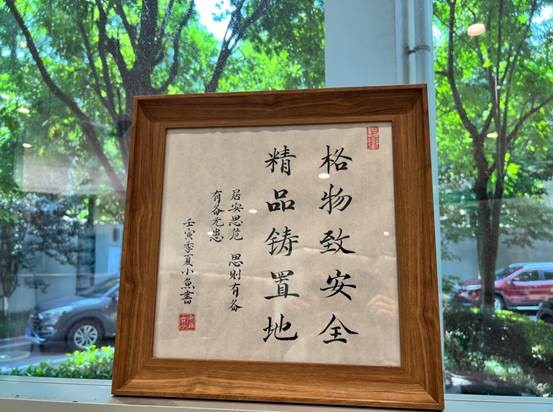 格物致安全
精品铸置地
居安思危 思则有备
有备无患
壬寅季夏小鱼書